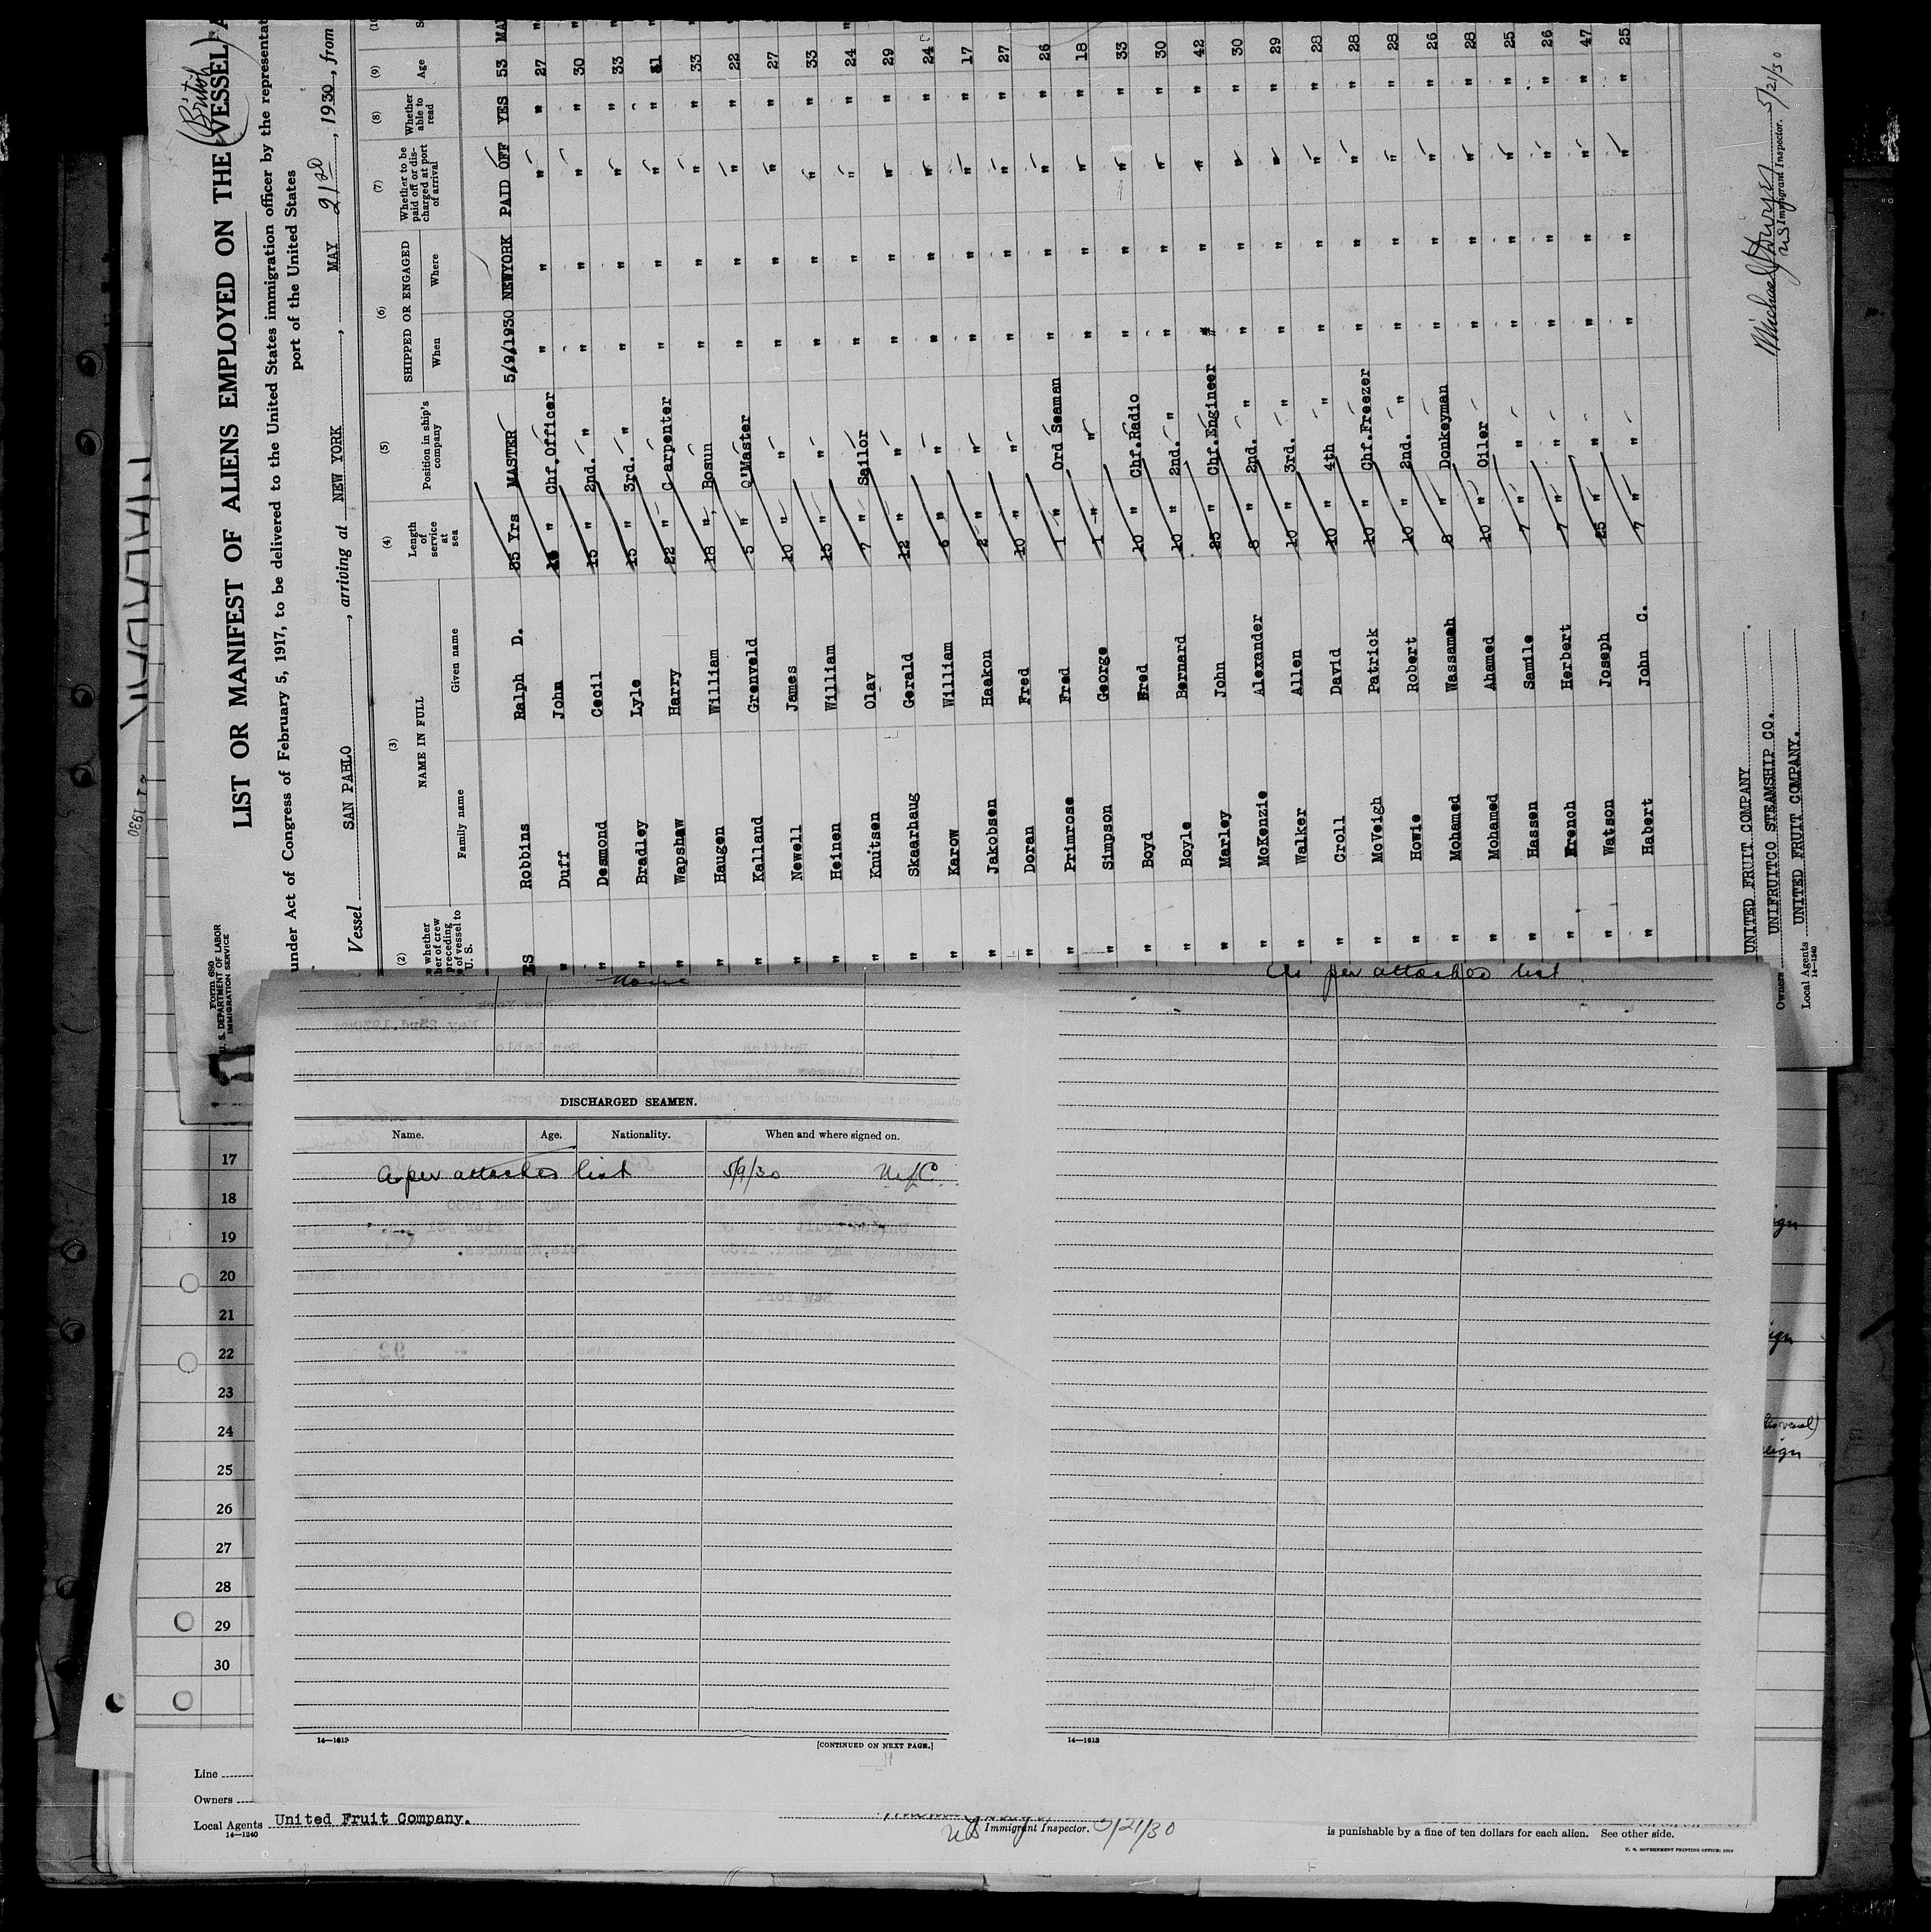 (British)
LIST OR MANIFEST OF ALIENS EMPLOYED ON THE VESSEL
under Act of Congress of February 5, 1917, to be delivered to the United States immigration officer by the representat
port of the United States
Vessel SAN PABLO, arriving at NEW YORK, MAY 21, 1930, from
Form 680
U. S. DEPARTMENT OF LABOR
IMMIGRATION SERVICE
(2) (3) (4) (5) (6) (7) (8) (9)
whether
ber of crew
preceding
of vessel to
U. S.
NAME IN FULL
Family name Given name
Length of service at sea
Position in ship's company
SHIPPED OR ENGAGED
When Where
Whether to be paid off or discharged at port of arrival
Whether able to read
Age
Robbins Ralph D. 35 Yrs MASTER 5/9/1930 NEWYORK PAID OFF YES 53
" Duff John " Chf.Officer " " " " 27
" Desmond Cecil 15 " 2nd. " " " " " 30
" Bradley Lyle 15 " 3rd. " " " " " 33
" Wapshaw Harry 22 " Carpenter " " " " 31
" Haugen William 18 " Bosun " " " " 33
" Kalland Grenveld 5 " Q'Master " " " " 22
" Newell James 10 " " " " " " 27
" Heinen William 15 " " " " " " 33
" Knutsen Olav 7 " Sailor " " " " 24
" Skaarhaug Gerald 12 " " " " " " 29
" Karow William 6 " " " " " " 24
" Jakobsen Haakon 2 " " " " " " 17
" Doran Fred 10 " " " " " " 27
" Primrose Fred 1 " Ord Seaman " " " " 26
" Simpson George 1 " " " " " " 18
" Boyd Fred 10 " Chf.Radio " " " " 33
" Boyle Bernard 10 " 2nd. " " " " " 30
" Marley John 25 " Chf.Engineer " " " " 42
" McKenzie Alexander 8 " 2nd. " " " " " 30
" Walker Allen 10 " 3rd. " " " " " 29
" Croll David 10 " 4th " " " " " 28
" McVeigh Patrick 10 " Chf.Freezer " " " " 28
" Howie Robert 10 " 2nd. " " " " " 28
" Mohamed Wassamah 8 " Donkeyman " " " " 26
" Mohamed Ahamed 10 " Oiler " " " " 28
" Hassen Samile 7 " " " " " " 25
" French Herbert 7 " " " " " " 26
" Watson Joseph 25 " " " " " " 47
" Habert John C. 7 " " " " " " 25
UNITED FRUIT COMPANY
Owners UNIFRUITCO STEAMSHIP CO.
Local Agents UNITED FRUIT COMPANY.
14—1240
US Immigrant Inspector. 5/21/30
None
DISCHARGED SEAMEN.
Name. Age. Nationality. When and where signed on.
As per attached list 5/9/30
14—1613
[CONTINUED ON NEXT PAGE.]
As per attached list
14—1613
17
18
19
20
21
22
23
24
25
26
27
28
29
30
Line
Owners
Local Agents United Fruit Company.
14—1240
US Immigrant Inspector. 5/21/30
is punishable by a fine of ten dollars for each alien. See other side.